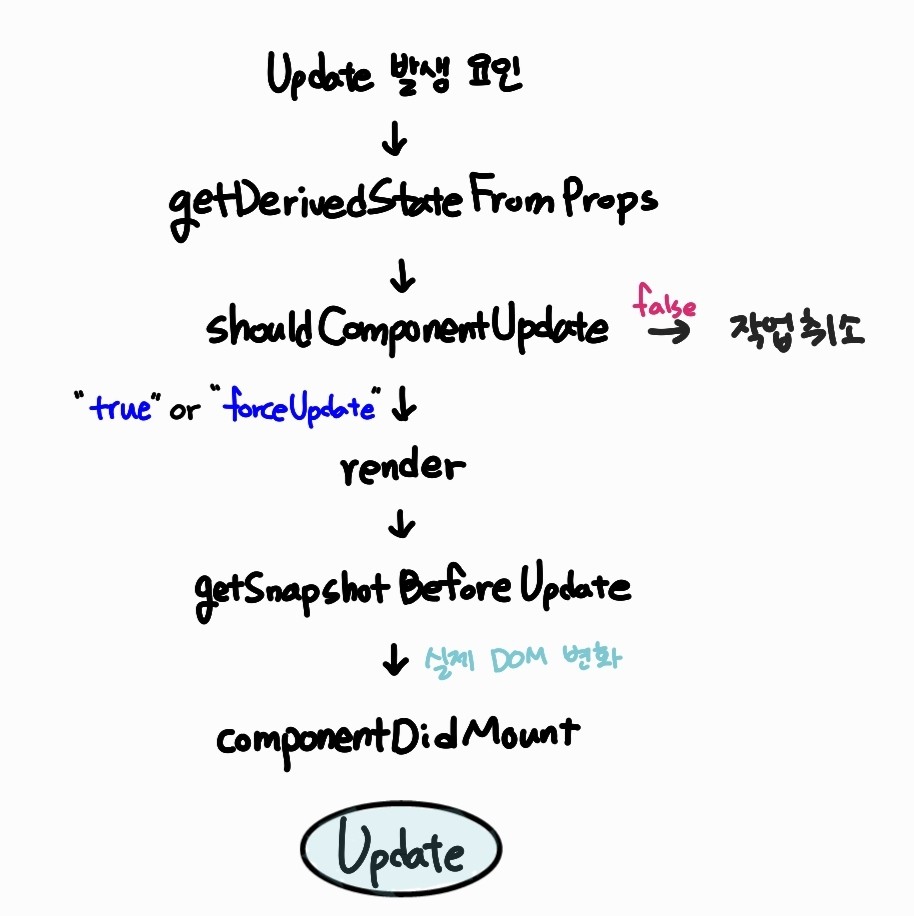 Update 발생 요인
↓
getDerivedStateFromProps
↓
shouldComponentUpdate false → 작업취소
"true" or "forceUpdate" ↓
render
↓
getSnapshotBeforeUpdate
↓ 실제 DOM 변화
componentDidMount
Update